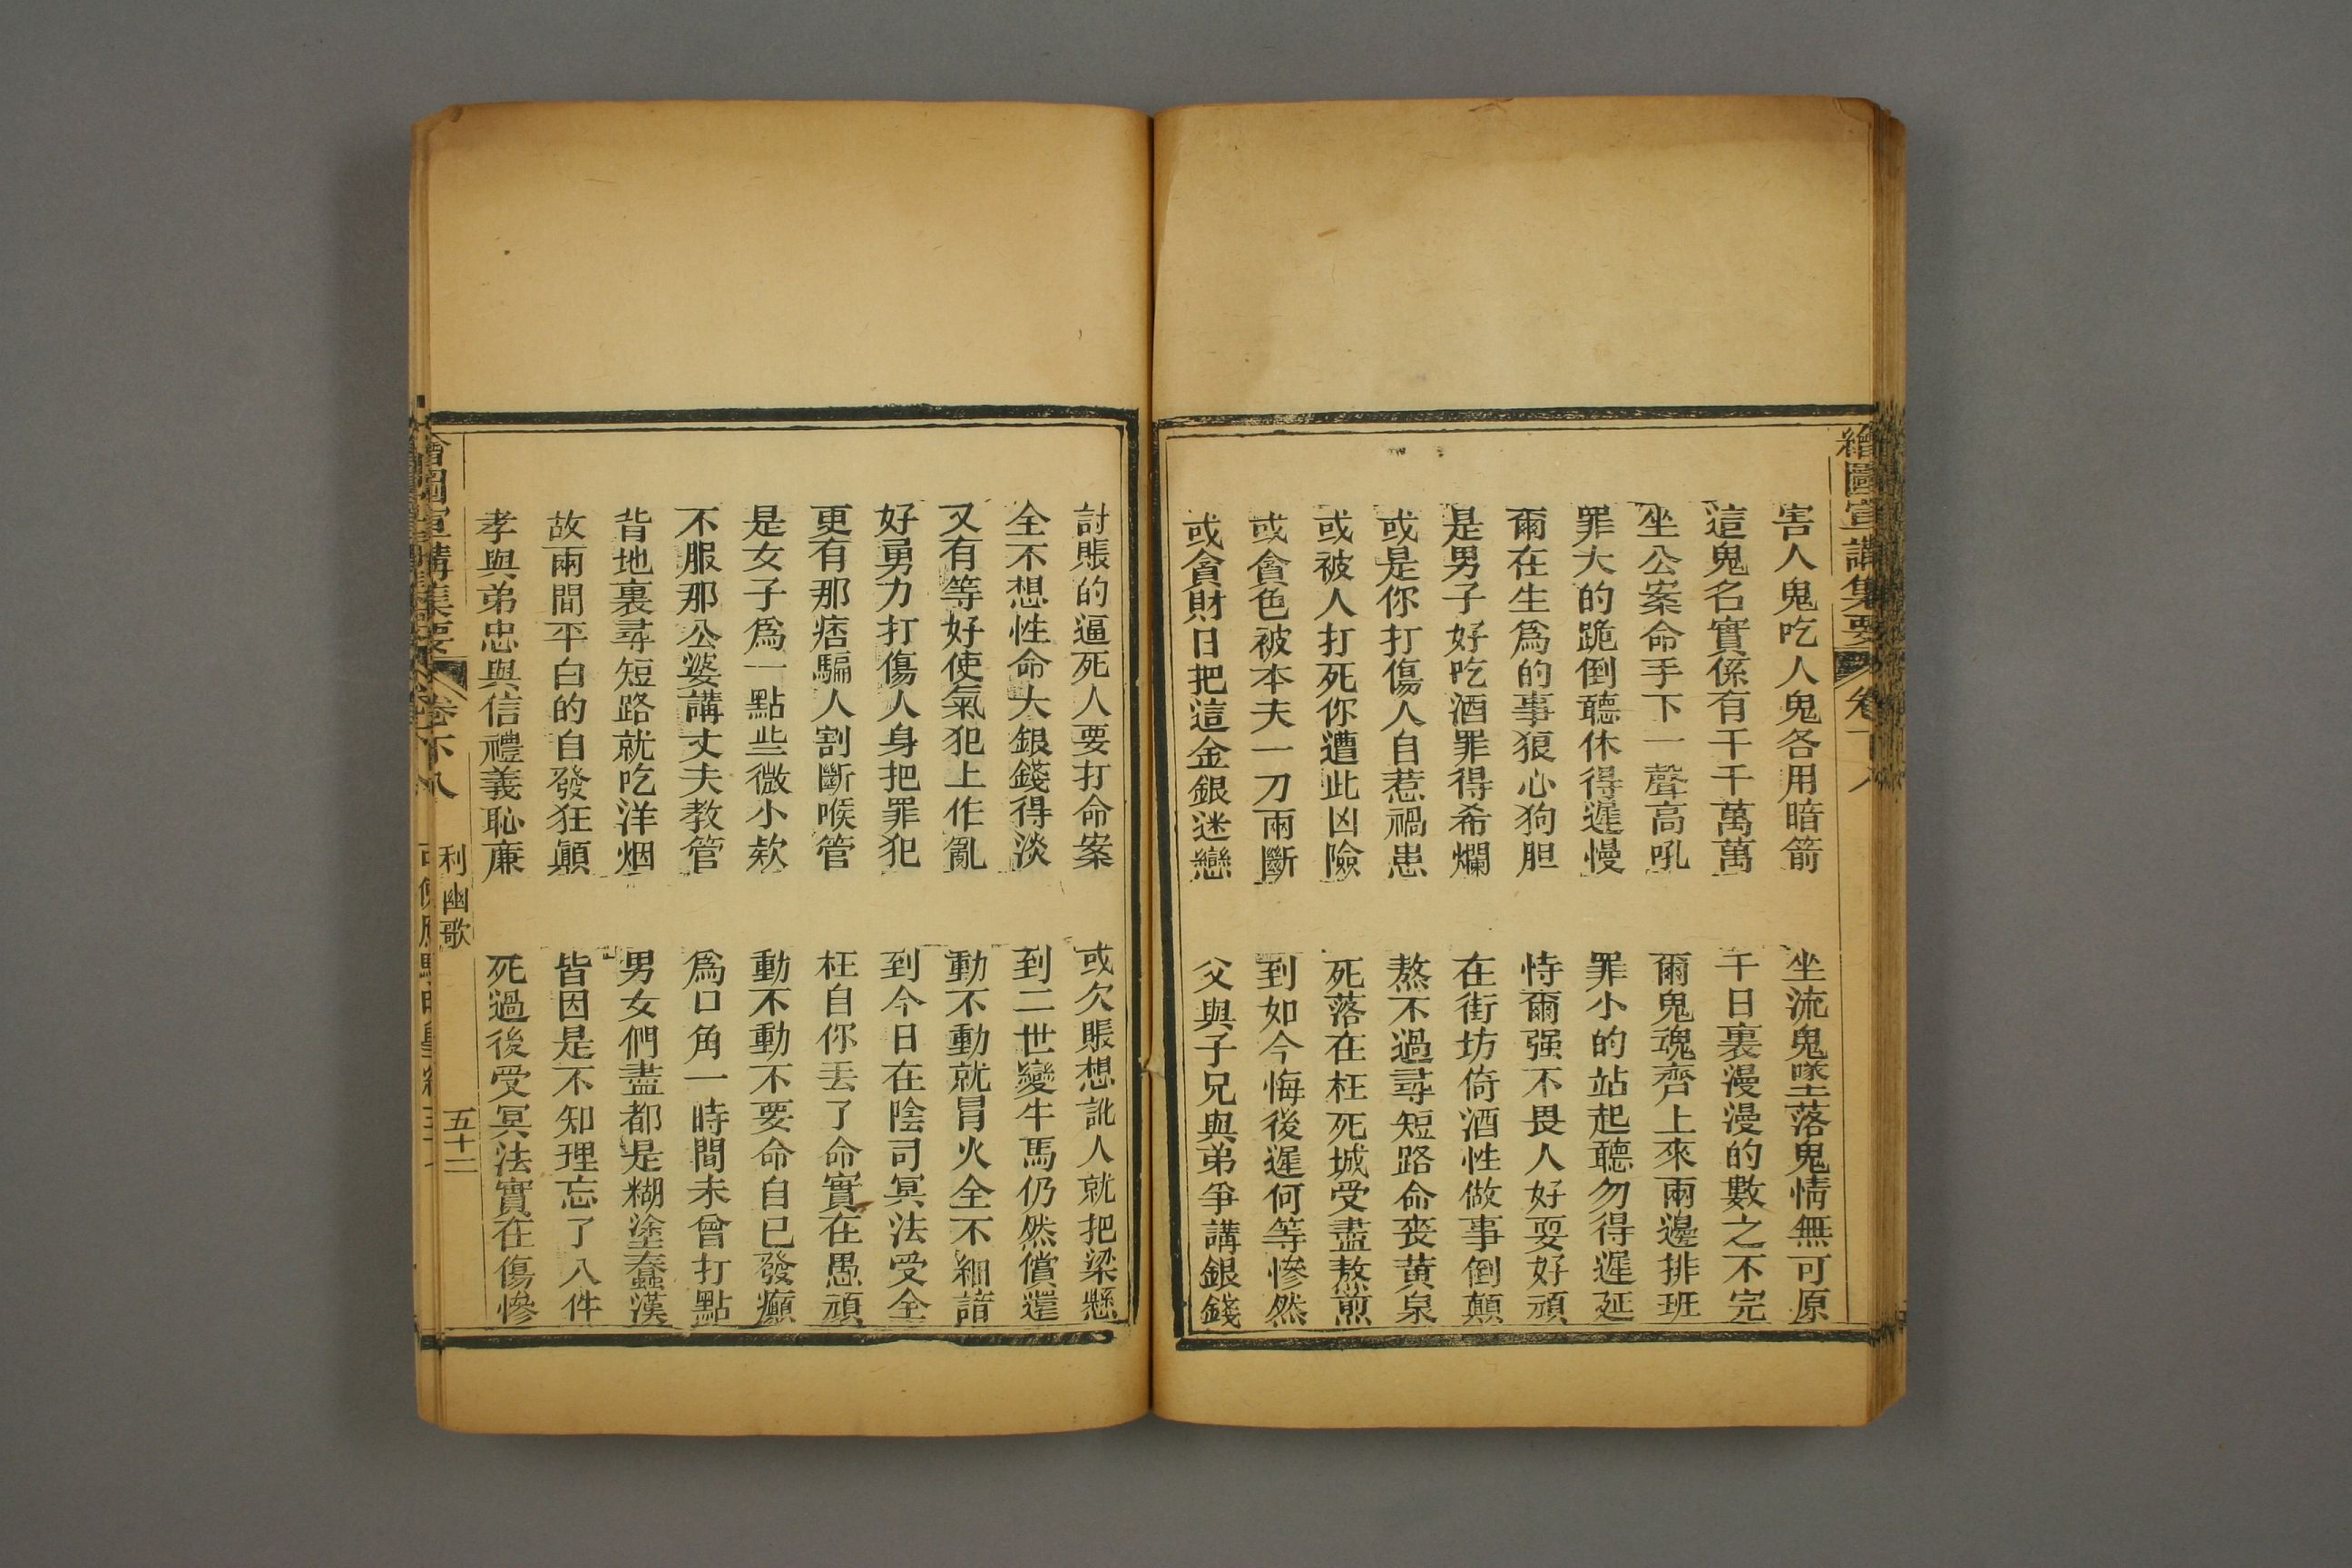 繪圖宣講集要 卷 八
害人鬼吃人鬼各用暗箭 坐流鬼墜落鬼情無可原
這鬼名實係有千千萬萬 千日裏漫漫的數之不完
坐公案命手下一聲高吼 爾鬼魂齊上來兩邊排班
罪大的跪倒聽休得遲慢 罪小的站起聽勿得遲延
爾在生爲的事狼心狗胆 恃爾强不畏人好耍好頑
是男子好吃酒罪得希爛 在街坊倚酒性做事倒顛
或是你打傷人自惹禍患 熬不過尋短路命丧黄泉
或被人打死你遭此凶險 死落在枉死城受盡熬煎
或貪色被本夫一刀兩斷 到如今悔後遲何等慘然
或貪財日把這金銀迷戀 父與子兄與弟爭講銀錢
討賬的逼死人要打命案 或欠賬想訛人就把梁懸
全不想性命大銀錢得淡 到二世變牛馬仍然償還
又有等好使氣犯上作亂 動不動就冐火全不細諳
好勇力打傷人身把罪犯 到今日在陰司冥法受全
更有那痞騙人割斷喉管 枉自你丟了命實在愚頑
是女子爲一點些微小欵 動不動不要命自已發癲
不服那公婆講丈夫教管 爲口角一時間未曾打點
背地裏尋短路就吃洋烟 男女們盡都是糊塗蠢漢
故兩間平白的自發狂顛 皆因是不知理忘了八件
孝與弟忠與信禮義恥廉 死過後受冥法實在傷慘
繪圖宣講集要 卷下八 利幽歌 五十二